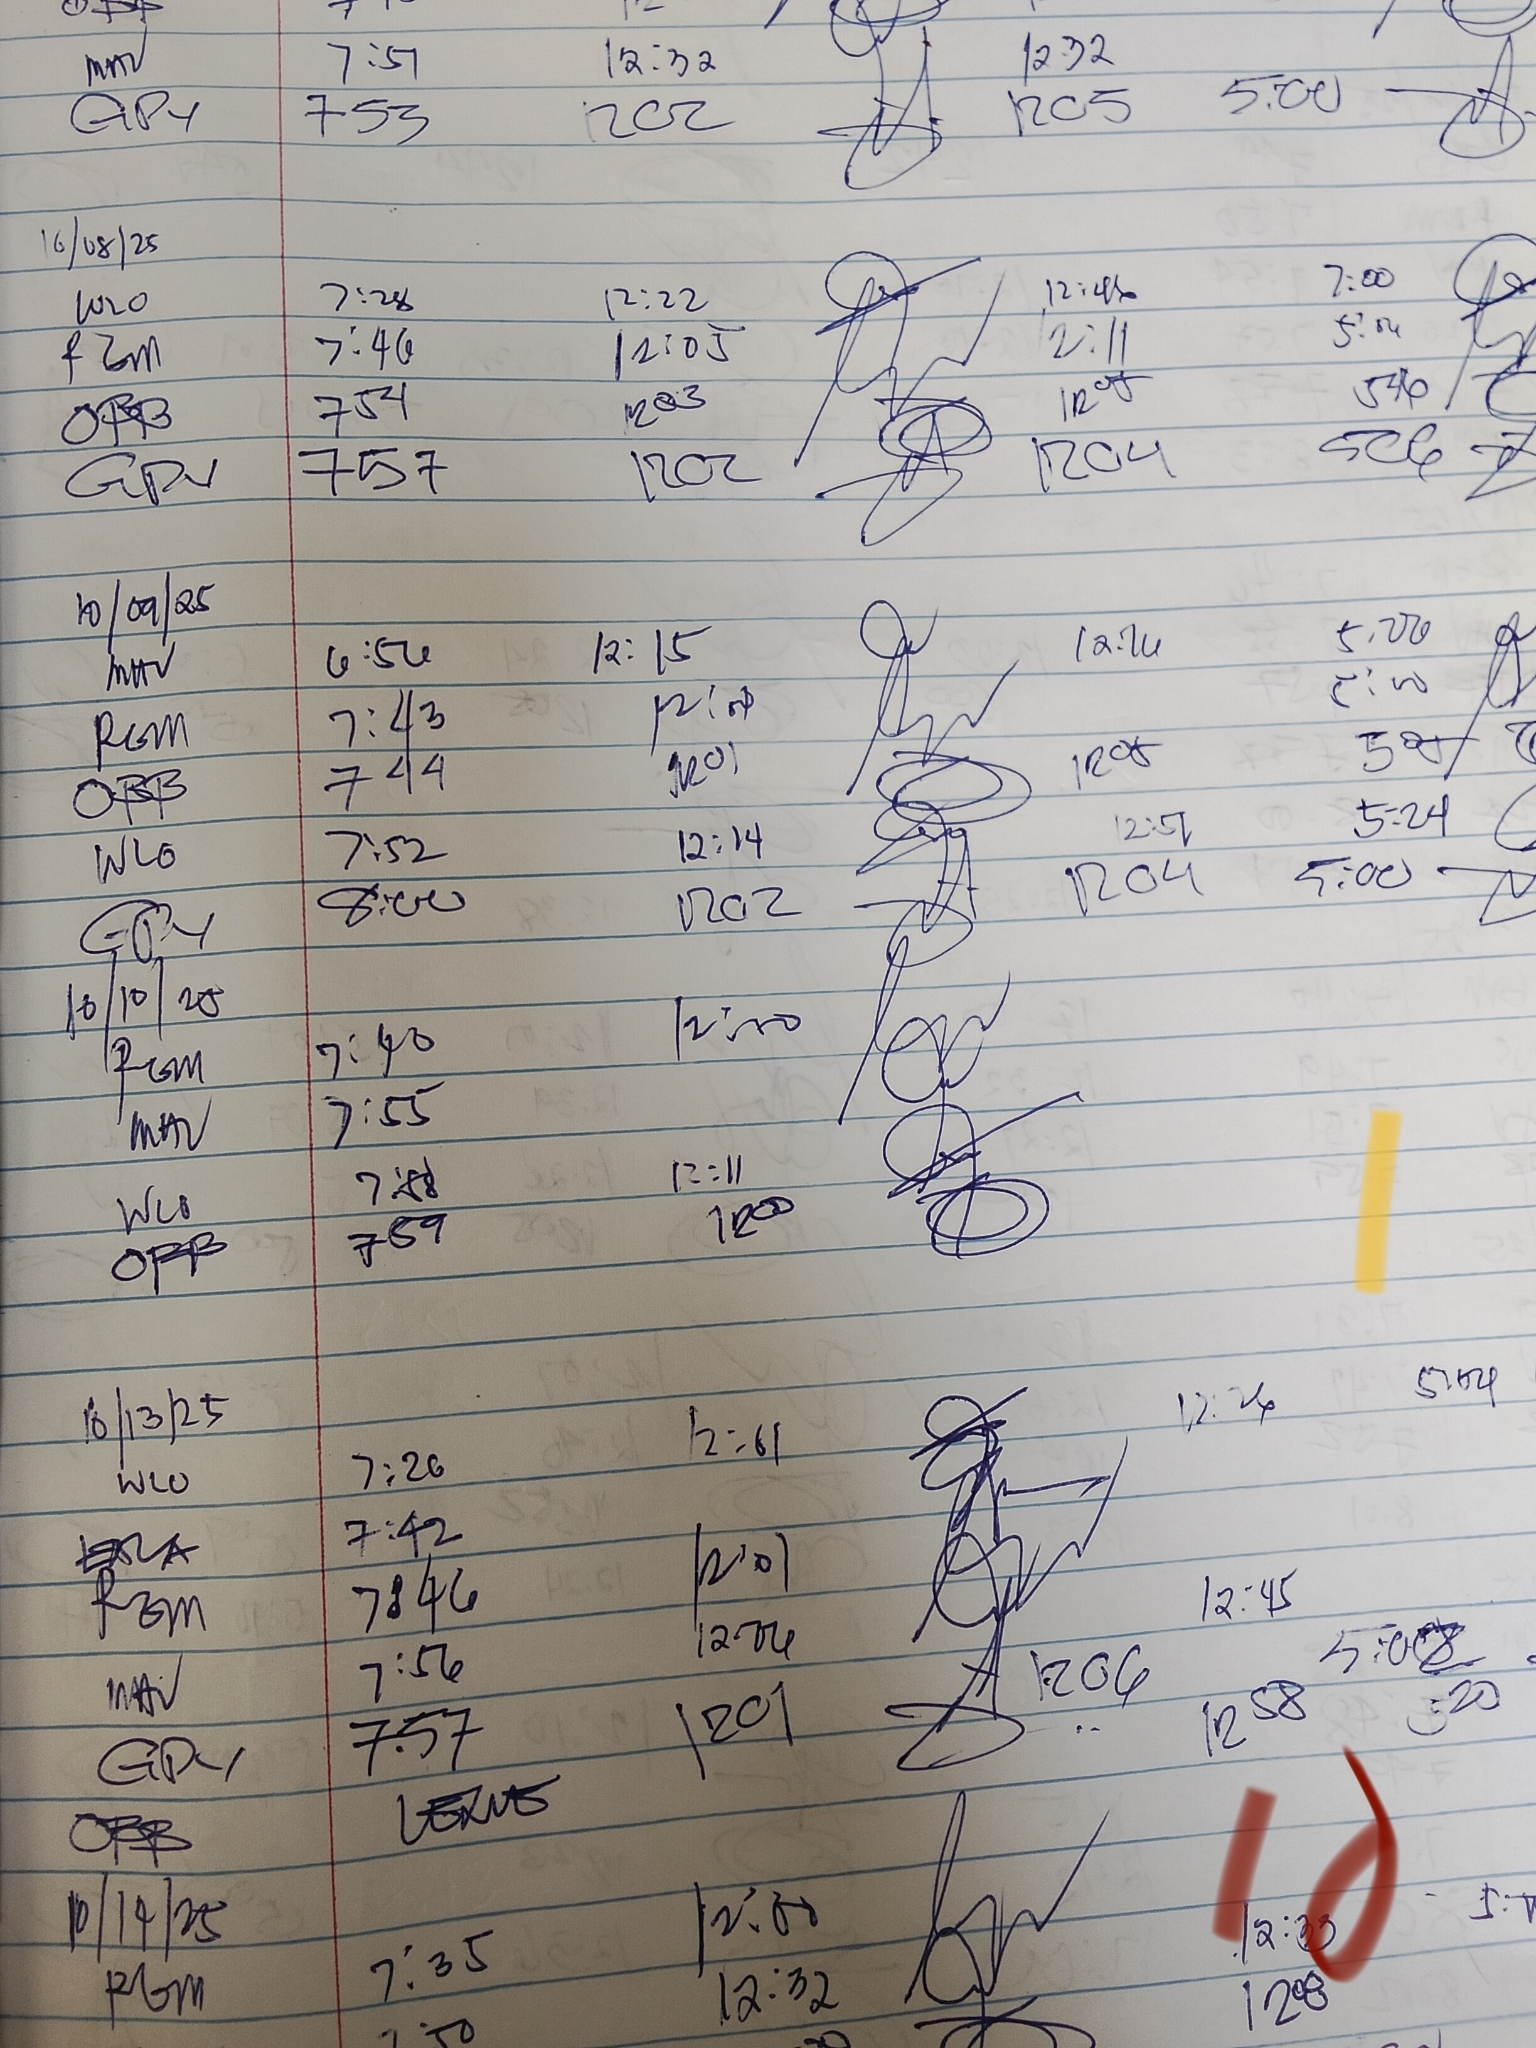 MAV 7:51 12:32 12:32
GPY 753 1202 1205 5:00
10/08/25
WLO 7:28 12:22 12:46 7:00
RGM 7:46 12:05 2:11 5:04
OBB 754 1203 1205 546
GPY 757 1202 1204 506
10/09/25
MAV 6:56 12:15 5:06
RGM 7:43
OBB 744 1201 1205 505
WLO 7:52 12:14 12:51 5:24
GPY 8:00 1202 1204 5:00
10/10/25
RGM 7:40 12:00
MAV 7:55
WLO 7:58 12:11
OBB 759 1200
10/13/25
WLO 7:26 12:01 12:26 5:04
7:42
RGM 7:46 12:01
MAV 7:56 12:06 12:45
GPY 7:57 1201 1206 5:02
OBB LEAVE 1258 520
10
10/14/25
RGM 7:35 12:00
12:32 12:33
1208